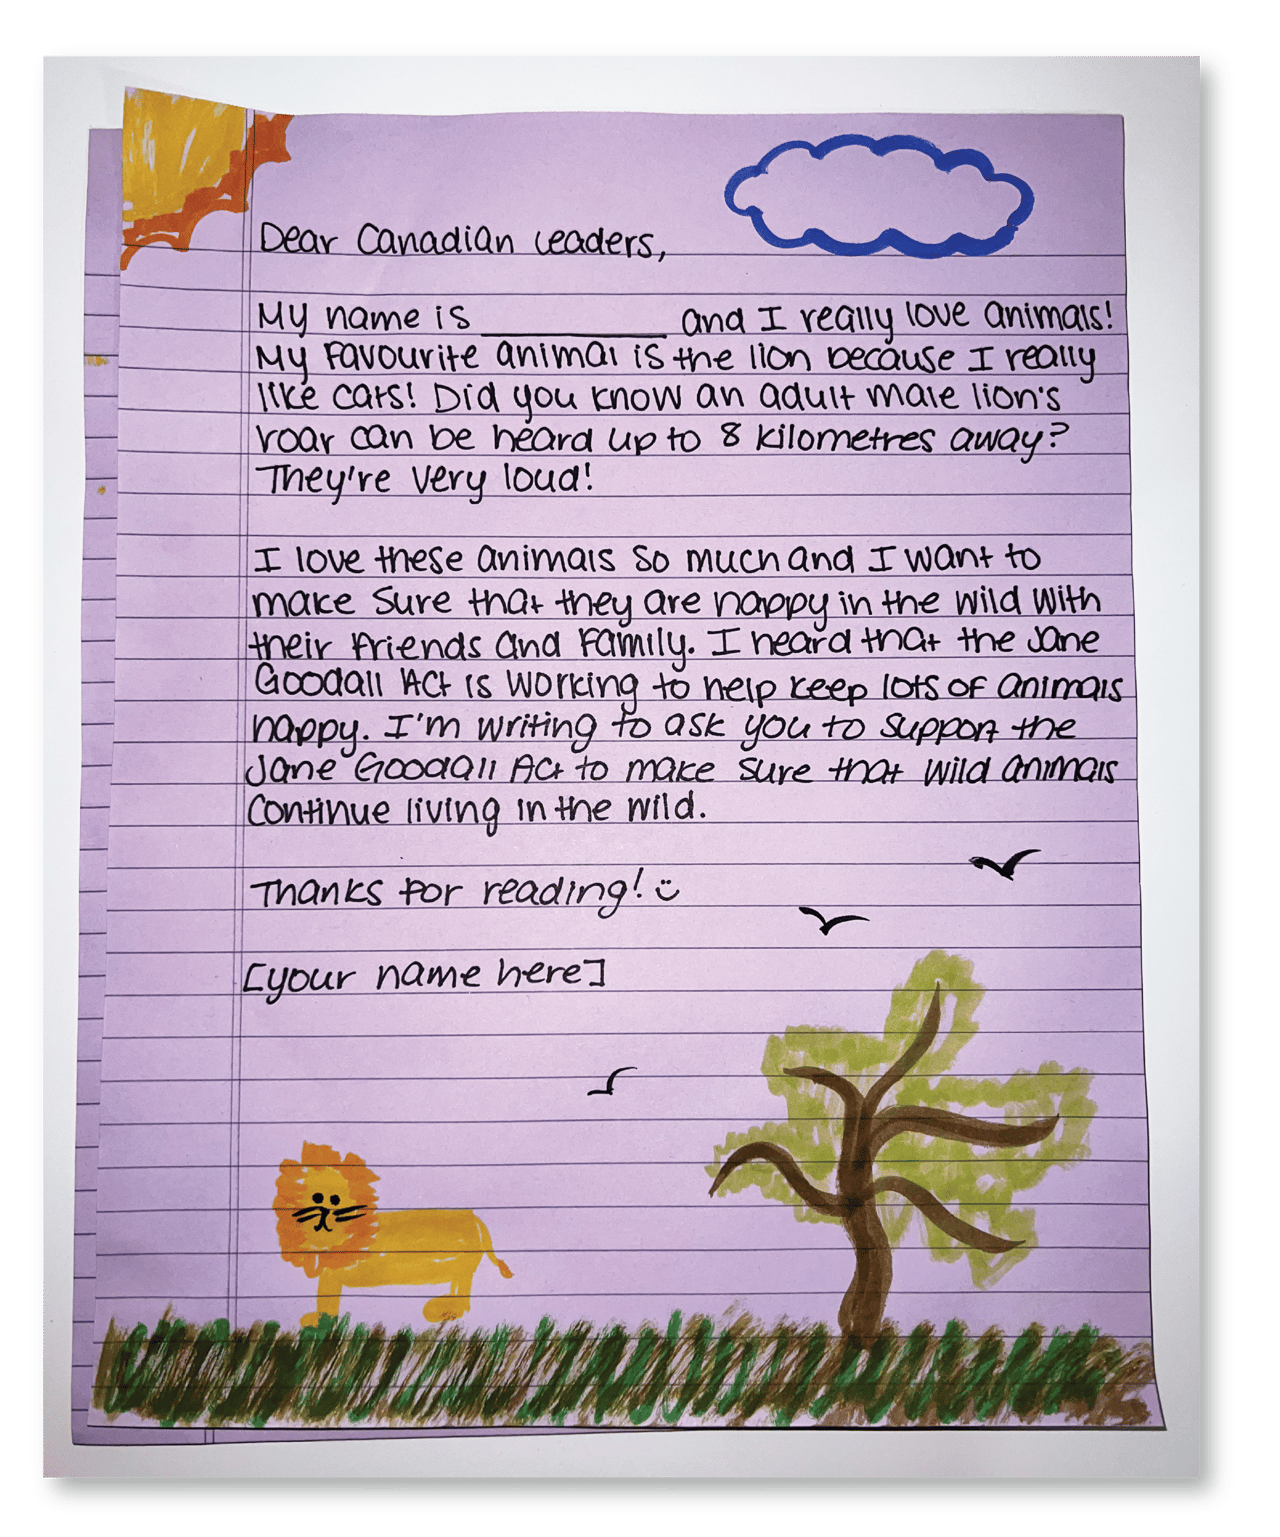 Dear Canadian Leaders,
My name is __________ and I really love animals!
My favourite animal is the lion because I really
like cats! Did you know an adult male lion's
roar can be heard up to 8 kilometres away?
They're very loud!
I love these animals so much and I want to
make sure that they are happy in the wild with
their friends and family. I heard that the Jane
Goodall Act is working to help keep lots of animals
happy. I'm writing to ask you to support the
Jane Goodall Act to make sure that wild animals
continue living in the wild.
Thanks for reading! :)
[your name here]